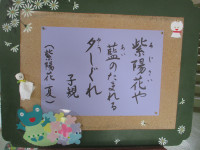 紫陽花や
あじさい
藍のたまれる
あい
夕しぐれ
ゆう
子規
(紫陽花 夏)